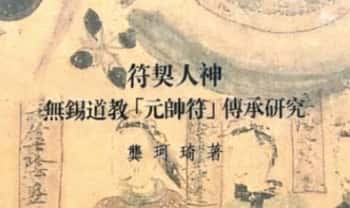 符契人神
無錫道教「元帥符」傳承研究
龔珂琦 著